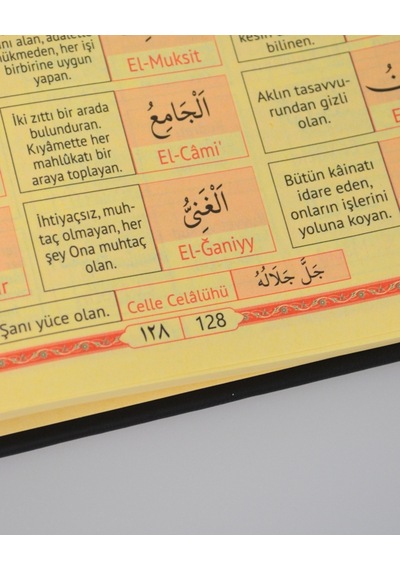 hükmeden, her işi
birbirine uygun
yapan.
El-Muksit
bilinen.
İki zıttı bir arada
bulunduran.
Kıyâmette her
mahlûkatı bir
araya toplayan.
اَلْجَامِعُ
El-Câmi'
Aklın tasavvu-
rundan gizli
olan.
İhtiyaçsız, muh-
taç olmayan, her
şey Ona muhtaç
olan.
اَلْغَنِيُّ
El-Ğaniyy
Bütün kâinatı
idare eden,
onların işlerini
yoluna koyan.
Şanı yüce olan.
Celle Celâlühü
جَلَّ جَلَالُهُ
١٢٨
128